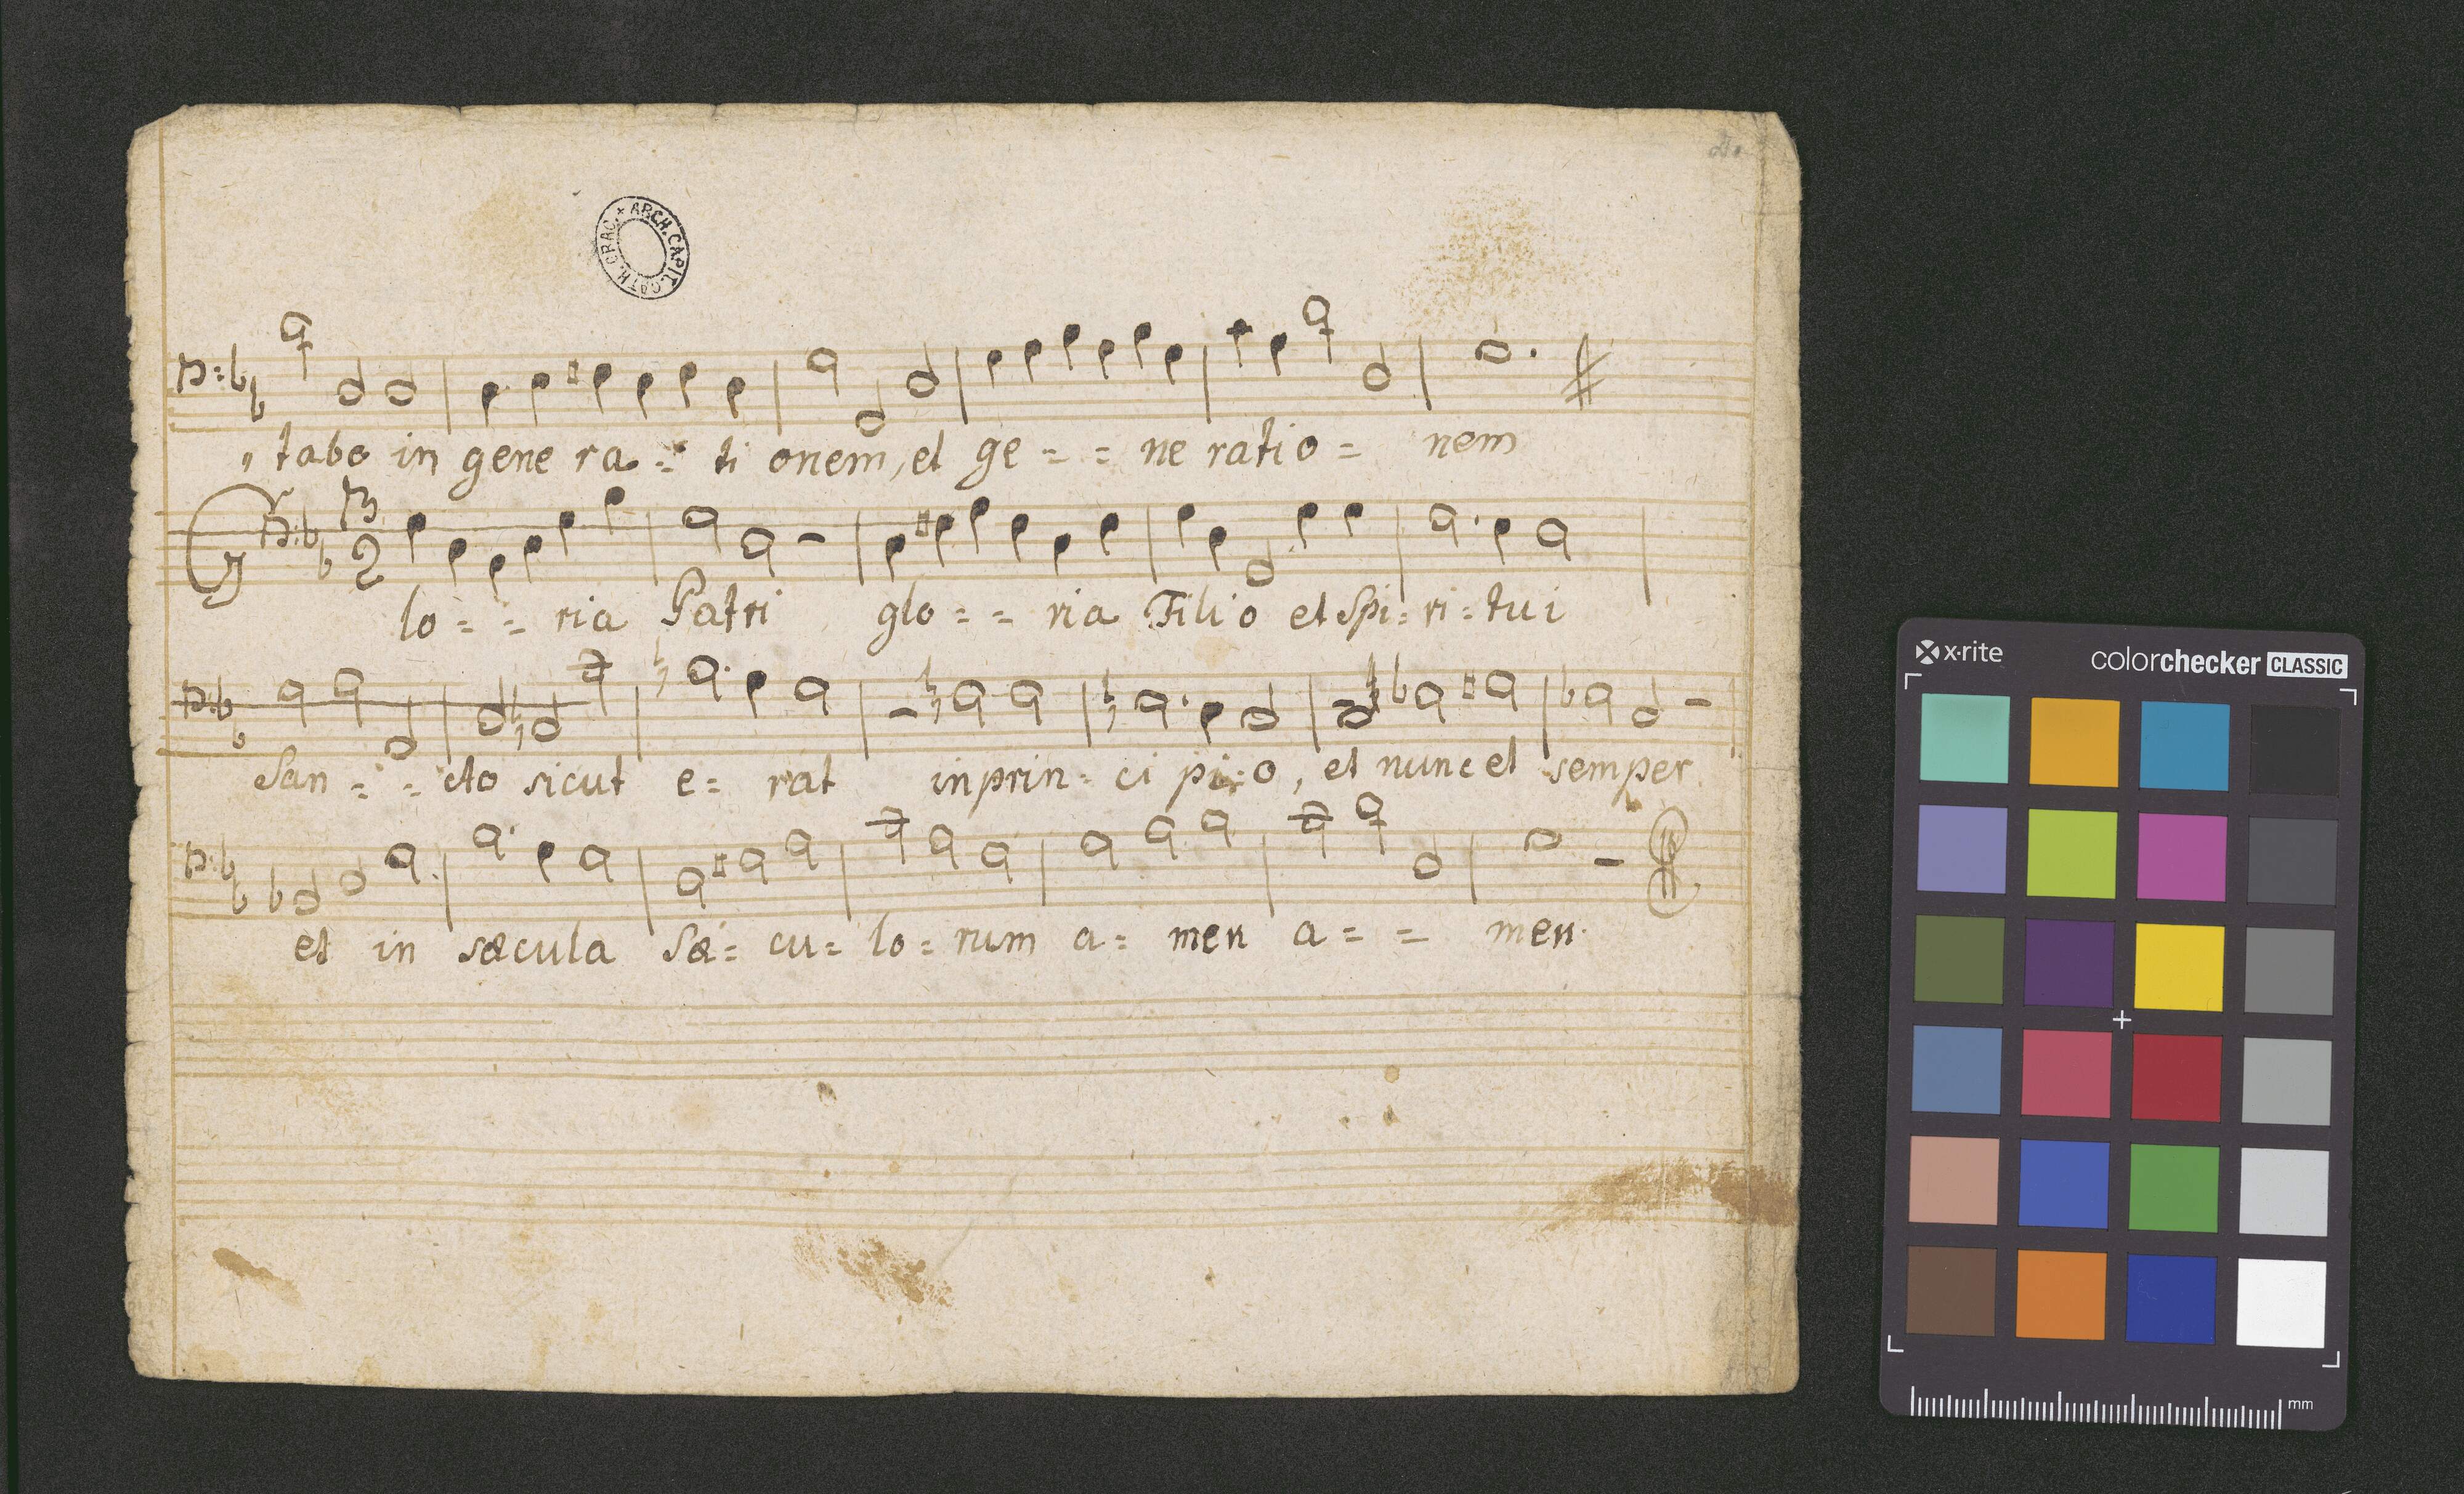 ARCH. CAPIT. CATH. CRAC.
tabo in gene ra = ti onem, et ge = = ne ratio = nem
3
2
G lo = = ria Patri glo = = ria Filio et Spi = ri = tui
San = = cto sicut e = rat in prin = ci pi = o, et nunc et semper
et in sæcula sæ = cu = lo = rum a = men a = = men
x-rite
colorchecker CLASSIC
mm